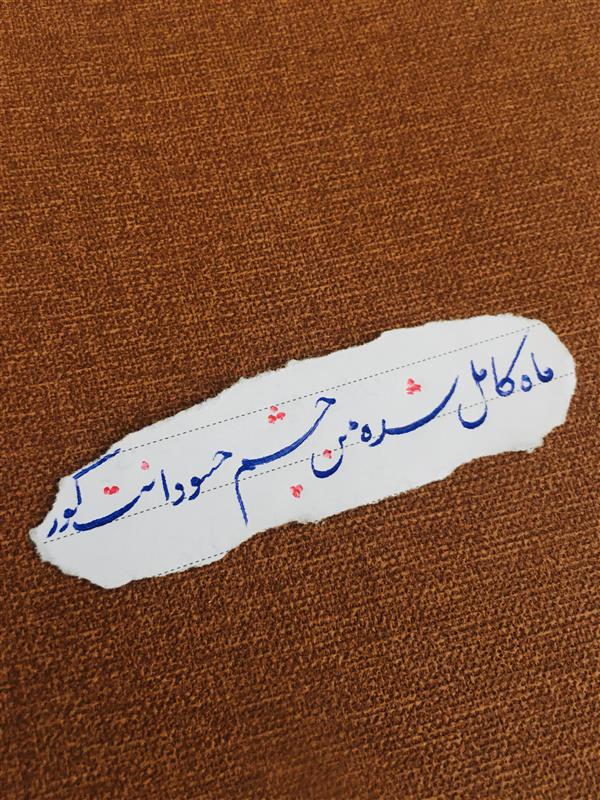 ماه کامل شده من چشم حسودانت کور